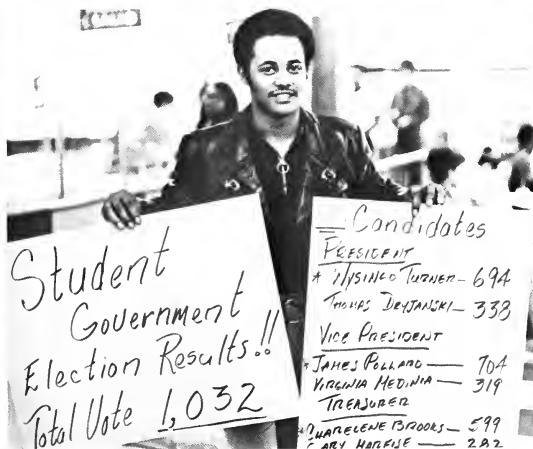 Student
Government
Election Results!!
Total Vote 1,032
Candidates
PRESIDENT
* TURNER - 694
THOMAS DRYJANSKI - 338
VICE PRESIDENT
* JAMES POLLARD - 704
VIRGINIA MEDINIA - 319
TREASURER
CHARELENE BROOKS - 599
GARY - 282